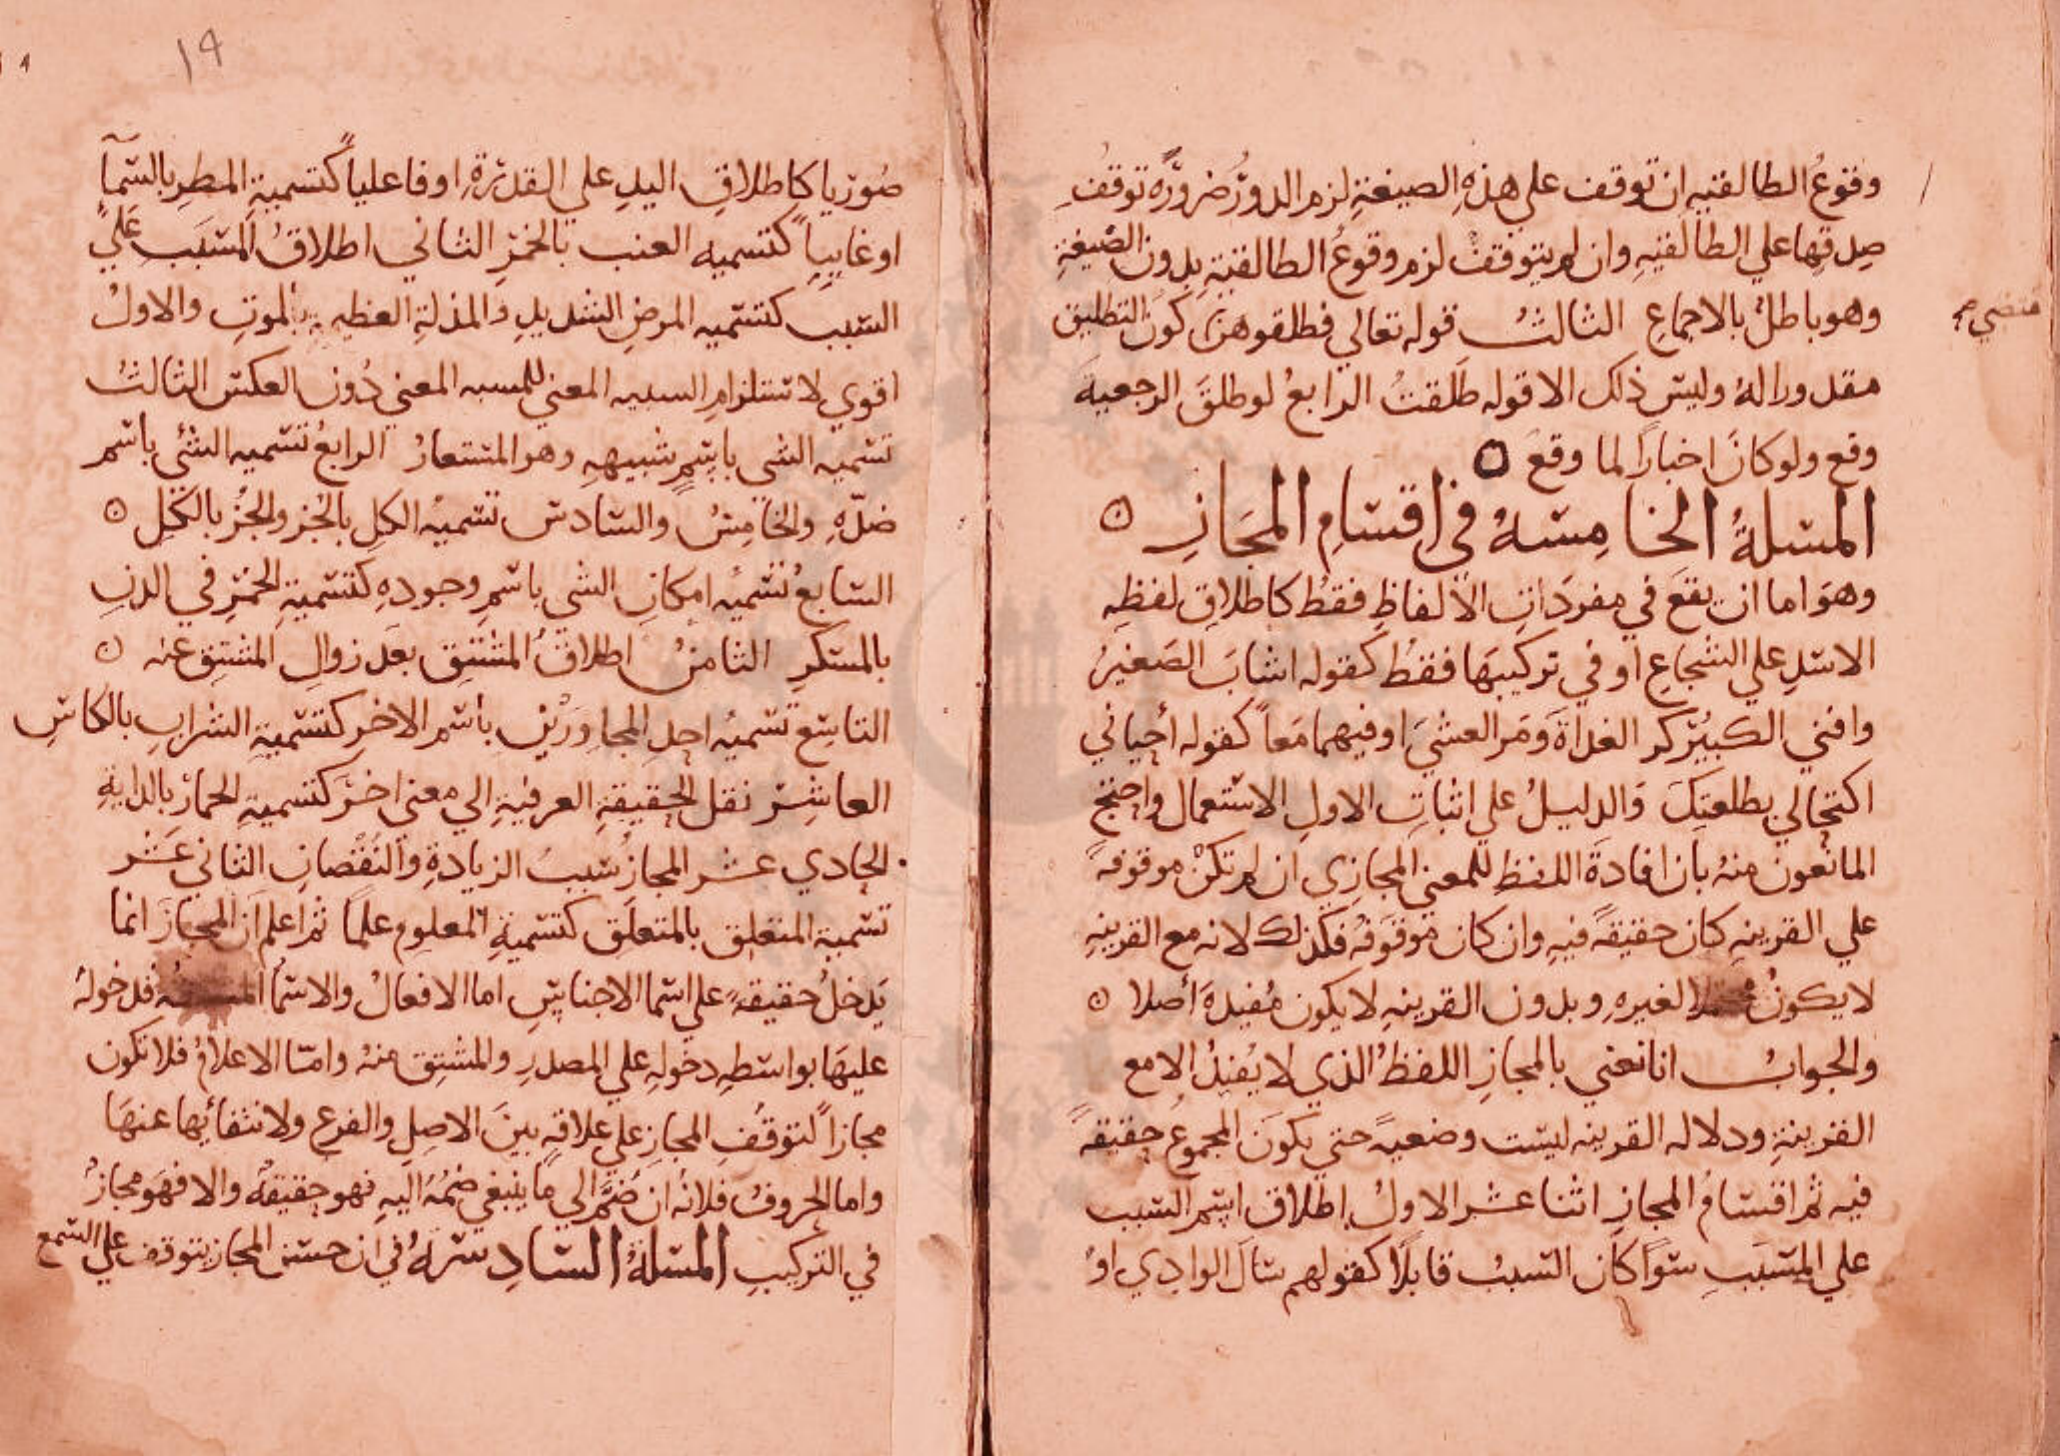 وقوعُ الطالقيه ان توقف علي هذهِ الصيغةِ لزم الدورُ ضرورةً توقفُ
صدقها علي الطالقيهِ وان لم يتوقفْ لزم وقوعُ الطالقيةِ بدون الصّيغةِ
وهو باطلٌ بالاجماعِ الثالثُ قوله تعالي فطلقوهن كون التطليق
مقدوراً لهُ وليس ذلك الا قوله طلّقتُ الرابعُ لو طلقَ الرجعيةَ
وقع ولو كانَ اخباراً لما وقعَ
المسلةُ الخامِسهُ في اقسَامِ المجَازِ
وهوَ اما ان يقعَ في مفردَاتِ الألفاظِ فقطُ كاطلاقِ لفظِهِ
الاسَدِ علي الشجاعِ أو في تركيبهَا فقطُ كقوله اشابَ الصَغيرَ
وافني الكبيْرَ كر الغداةَ وَمَر العشيَ او فيهما مَعاً كقوله أحياني
اكتحالي بطلعتِكَ وَالدليلُ علي اثباتِ الاولِ الاستعمال واحتجَ
المانعون منهُ بأن افادةَ اللفظِ للمعني المجازِي ان لم تكنْ موقوفهً
علي القرينهِ كان حقيقهً فيهِ وان كان موقوفهً فكذلك لانه مع القرينهِ
لا يكونُ محتملا لغيرهِ وبدون القرينهِ لا يكون مُفيدةَ أصلا
والجوابُ انا نعني بالمجازِ اللفظُ الذي لا يُفيدُ الا مع
القرينةِ ودلاله القرينه ليست وضعيهً حتي يكونَ المجموعُ حقيقهً
فيه ثم اقسَامُ المجازِ اثنا عشر الاولُ إطلاق اسم السبب
علي المسَببِ سَوآ كان السببُ قابلًا كقولهم سَالَ الوادِي اوْ
مقتضي صح
١٩
صُوريا كاطلاقِ اليدِ علي القدرةِ او فاعلياً كتسميةِ المطرِ بالسّمآ
او غاييا كتسميه العنب بالخمرِ الثاني اطلاقُ المسَبَب عَليَ
السّبب كتسميه المرضِ الشديدِ والمذلةِ العظيمه بالموتِ والاولُ
اقوي لاستلزامِ السببه المعني للمسبه المعني دُون العكس الثالثُ
تسميه الشي باسْمِ شبيههِ وهو المستعارُ الرابعُ تسميه الشئ باسم
ضدّهِ والخامِسُ والسَادس تسميهُ الكلِ بالجُز والجُز بالكلِ
السَابعُ تسميهُ امكانِ الشي باسمِ وجودِهِ كتسميةِ الخمرِ في الدنِ
بالمسكرِ الثامنُ اطلاقُ المشتقِ بعَد زوالِ المشتقِ عنه
التاسِع تسميهُ احدِ المجاورَيْن باسم الاخر كتسميةِ الشرابِ بالكاسِ
العاشِرُ نقل الحقيقةِ العرفيةِ الي معني اخرَ كتسميةِ الحمارُ بالدابةِ
الحادي عشر المجازُ بسببُ الزيادةِ والنقْصانِ الثاني عَشر
تسمية المتعلِق بالمتعلَق كتسميةِ المعلوم علماً ثم اعلم اَن المجازَ انما
يَدخلُ حقيقهً علي اسما الاجناسِ اما الافعالُ والاسمآ المشتقهُ فدخولهُ
عليهَا بواسَطهِ دخولهِ علي المصدرِ والمشتِق منهُ وامّا الاعلامُ فلا تكون
مجازاً لتوقُفِ المجازِ علي علاقهٍ بينَ الاصِلِ والفرع ولانتفائِها عنهَا
واما الحروفُ فلانهُ ان ضُمَّ الي ما ينبغي ضمُهُ اليهِ فهو حقيقهٌ والا فهوَ مجازٌ
في التركيبِ المسَلةُ السَادِسَهُ في ان حسن المجاز يتوقف علي السّمع